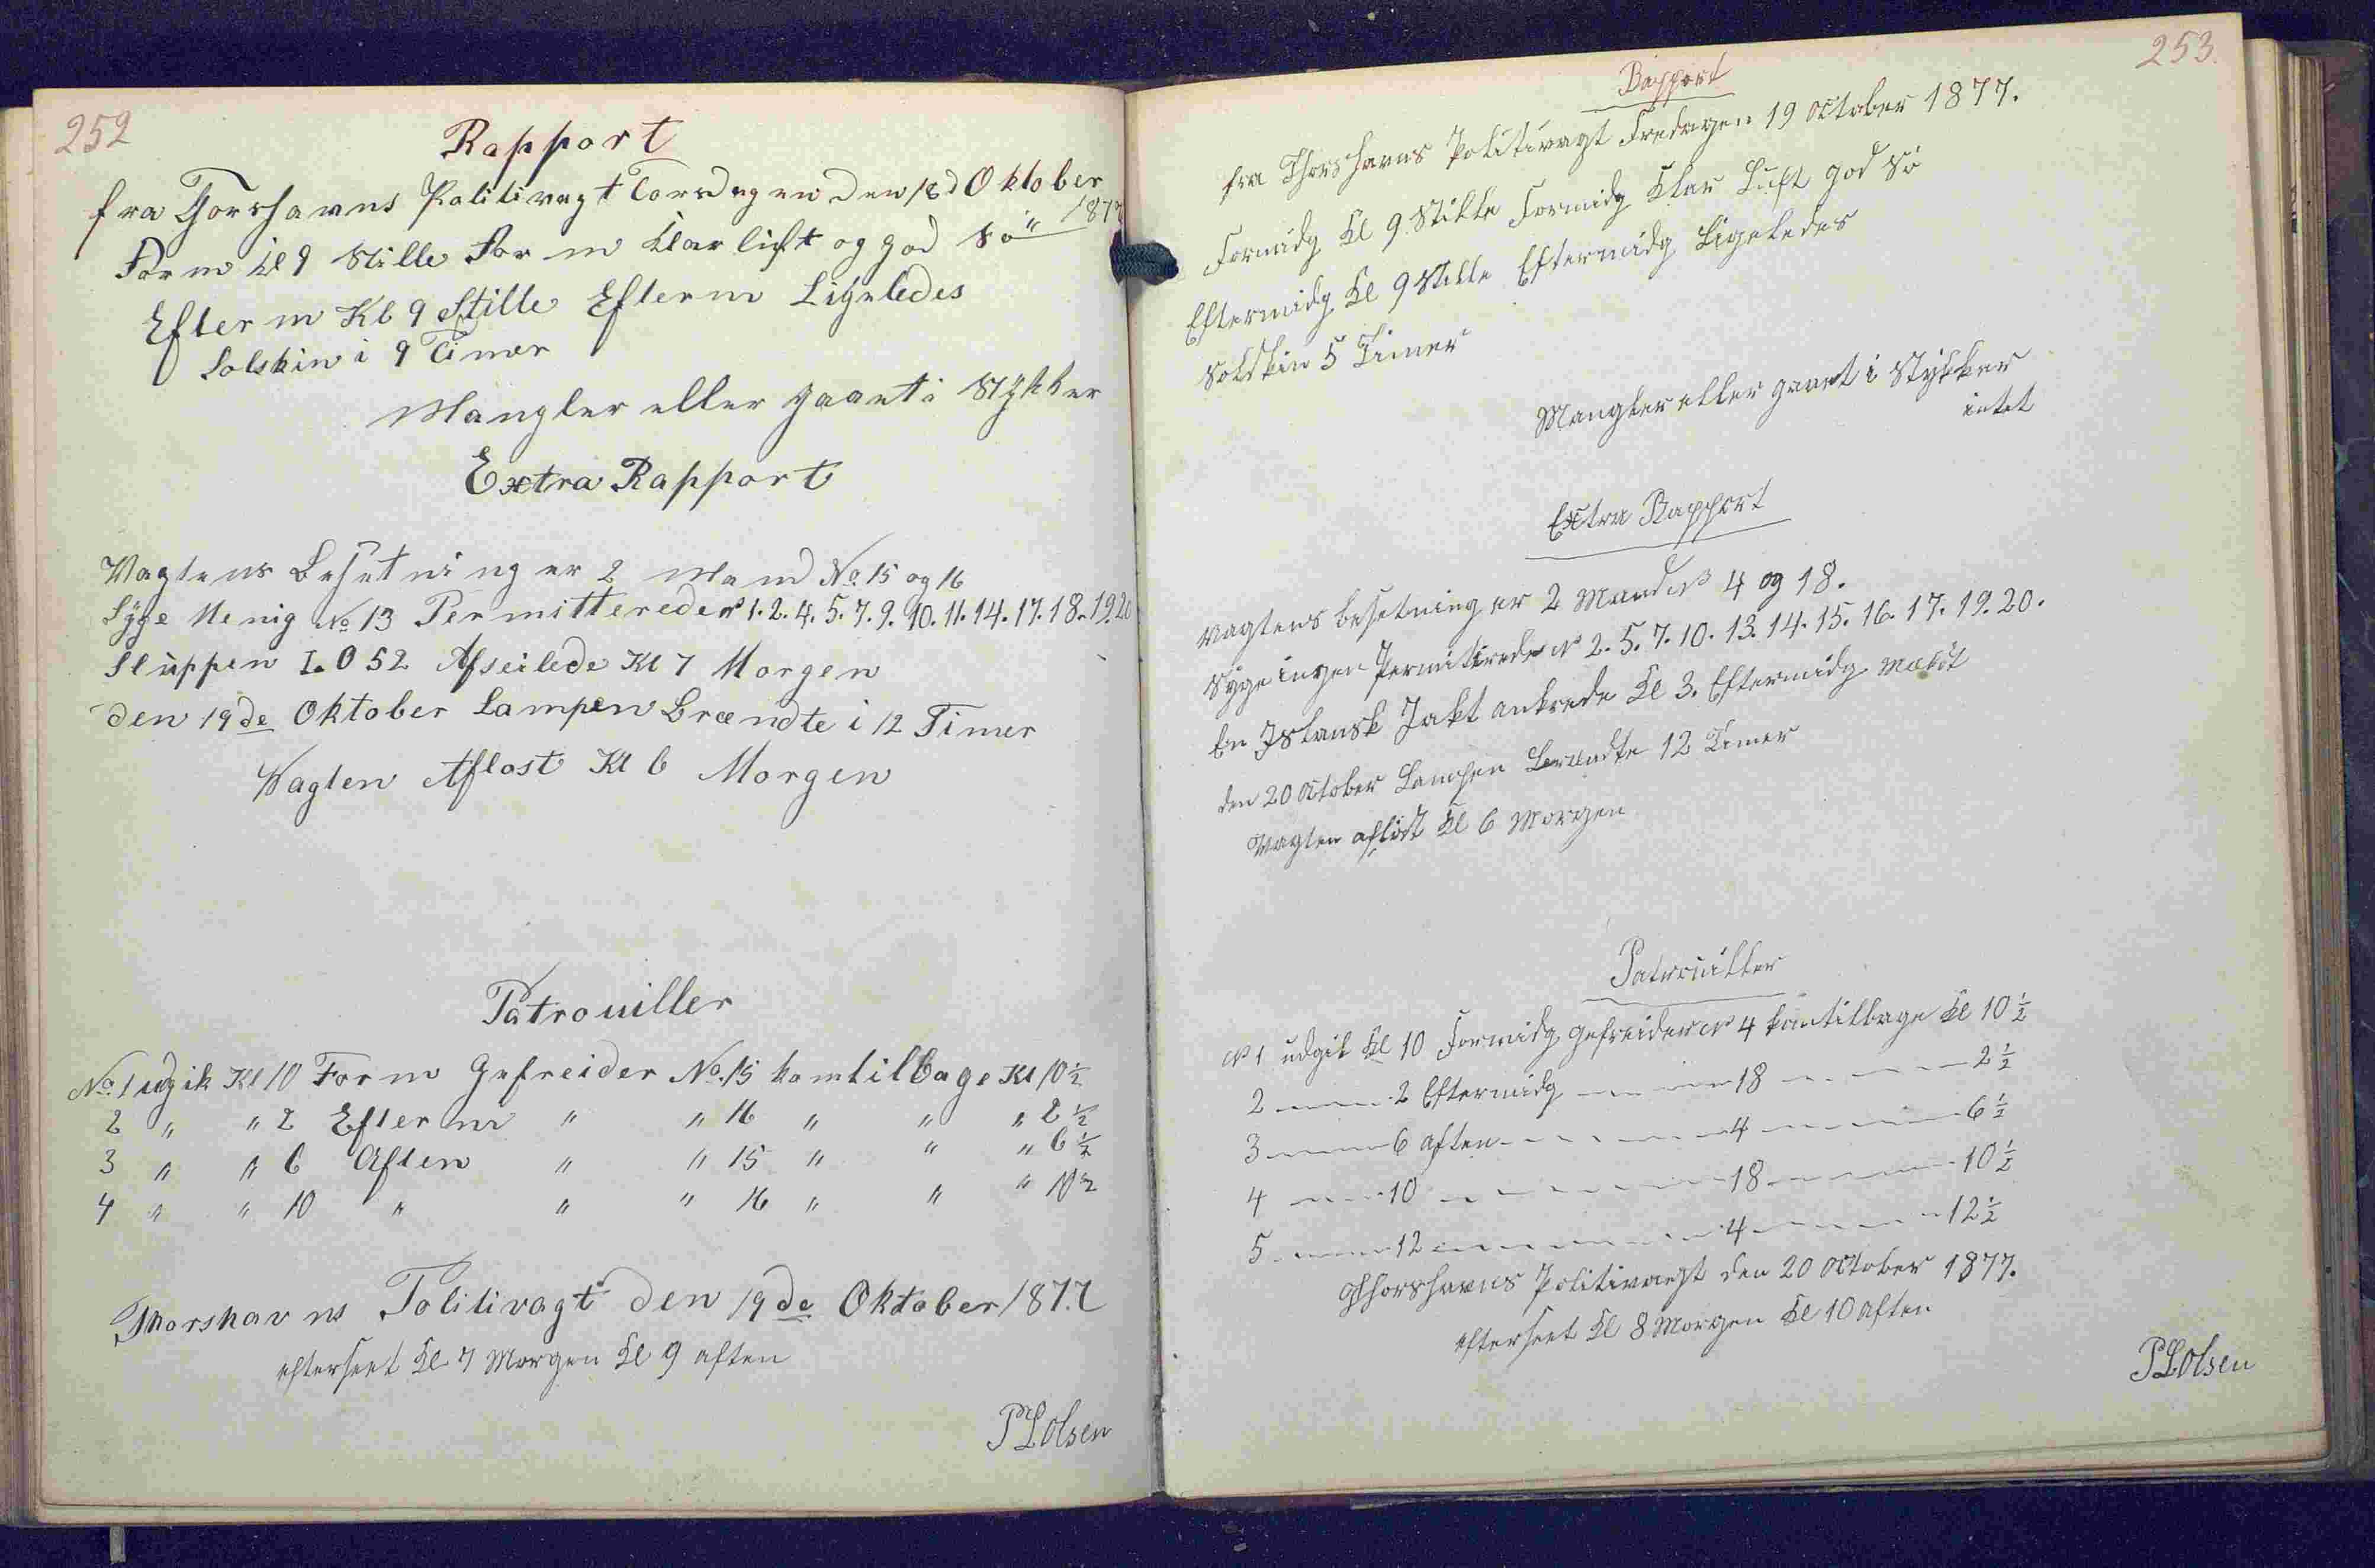 252
Rapport
fra Torshavns Politivagt Torsdagen den 18d Oktober
1877
Form Kl 9 Stille Form Klar luft og god Sö
Efterm Kl 9 Stille Efterm Ligeledes
Solskin i 9 Timer
Mangler eller gaaet i Stykker
Extra Rapport
Vagtens Besetning er 2 Mand No 15 og 16
Syge Menig No 13 Permitterede No 1. 2. 4. 5. 7. 9. 10. 11. 14. 17. 18. 19. 20
Sluppen L.O 52 Afseilede Kl 7 Morgen
den 19de Oktober Lampen Brændte i 12 Timer
Vagten Aflöst Kl 6 Morgen
Patrouiller
No. 1 udgik Kl 10 Form Gefreider No. 15 kom tilbage Kl 10½
2 " " 2 Efterm " " 16 " " " 2½
3 " " 6 Aften " " 15 " " " 6½
4 " " 10 " " " 16 " " " 10½
Thorshavns Politivagt den 19de Oktober 1877
efterseet Kl 7 Morgen Kl 9 aften
PLOlsen
253.
Rapport
fra Thorshavns Politivagt Fredagen 19 October 1877.
Formidg Kl 9 Stille Formidg Klar Luft god Sö
Eftermidg Kl 9 Stille Eftermidg Ligeledes
Solskin 5 Timer
Mangler eller gaaet i Stykker
intet
Extra Rapport
Vagtens besetning er 2 Mand No 4 og 18.
Syge ingen Permitirede No 2. 5. 7. 10. 13. 14. 15. 16. 17. 19. 20.
En Islansk Jakt ankrede Kl 3. Eftermidg
den 20 October Lampen Brændte 12 Timer
Vagten aflöst Kl 6 Morgen
Patrouiller
No 1 udgik Kl 10 Formidg gefreider No 4 kom tilbage Kl 10½
2 — 2 Eftermidg — 18 — 2½
3 — 6 aften — 4 — 6½
4 — 10 — 18 — 10½
5 — 12 — 4 — 12½
Thorshavns Politivagt den 20 October 1877.
efterseet Kl 8 Morgen Kl 10 aften
PLOlsen